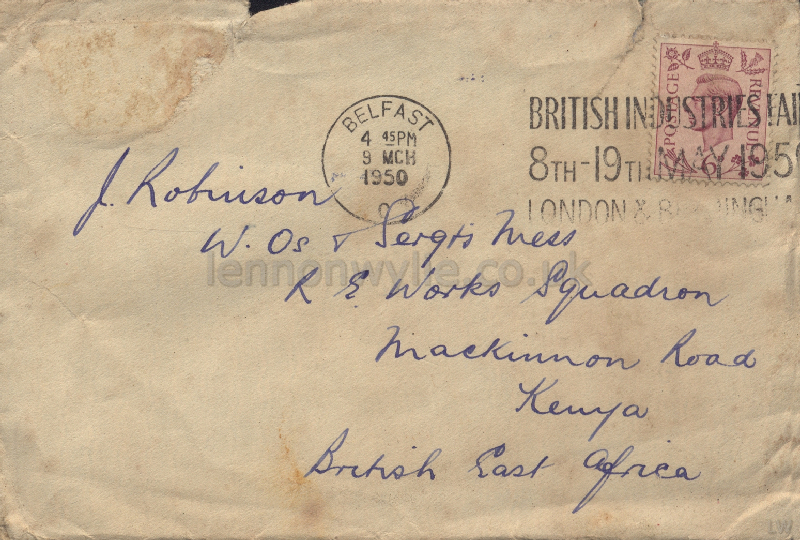 BELFAST
4 45PM
9 MCH
1950
BRITISH INDUSTRIES FAI
8TH-19TH MAY 1950
LONDON & BIRMINGHA
POSTAGE
REVENUE
6D
J. Robinson
W. Os & Sergts Mess
R E Works Squadron
Mackinnon Road
Kenya
British East Africa
lennonwylie.co.uk
LW